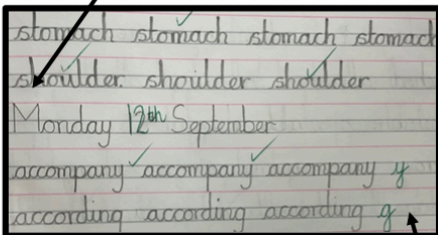 stomach stomach stomach stomach
shoulder. shoulder shoulder
Monday 12th September
accompany accompany accompany y
according according according g